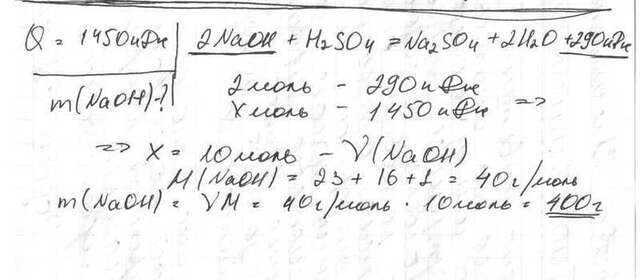 Q = 1450 кДж | 2NaOH + H₂SO₄ = Na₂SO₄ + 2H₂O + 290 кДж
m(NaOH)-?
2 моль - 290 кДж
X моль - 1450 кДж =>
=> X = 10 моль - ν(NaOH)
M(NaOH) = 23 + 16 + 1 = 40 г/моль
m(NaOH) = νM = 40 г/моль · 10 моль = 400 г